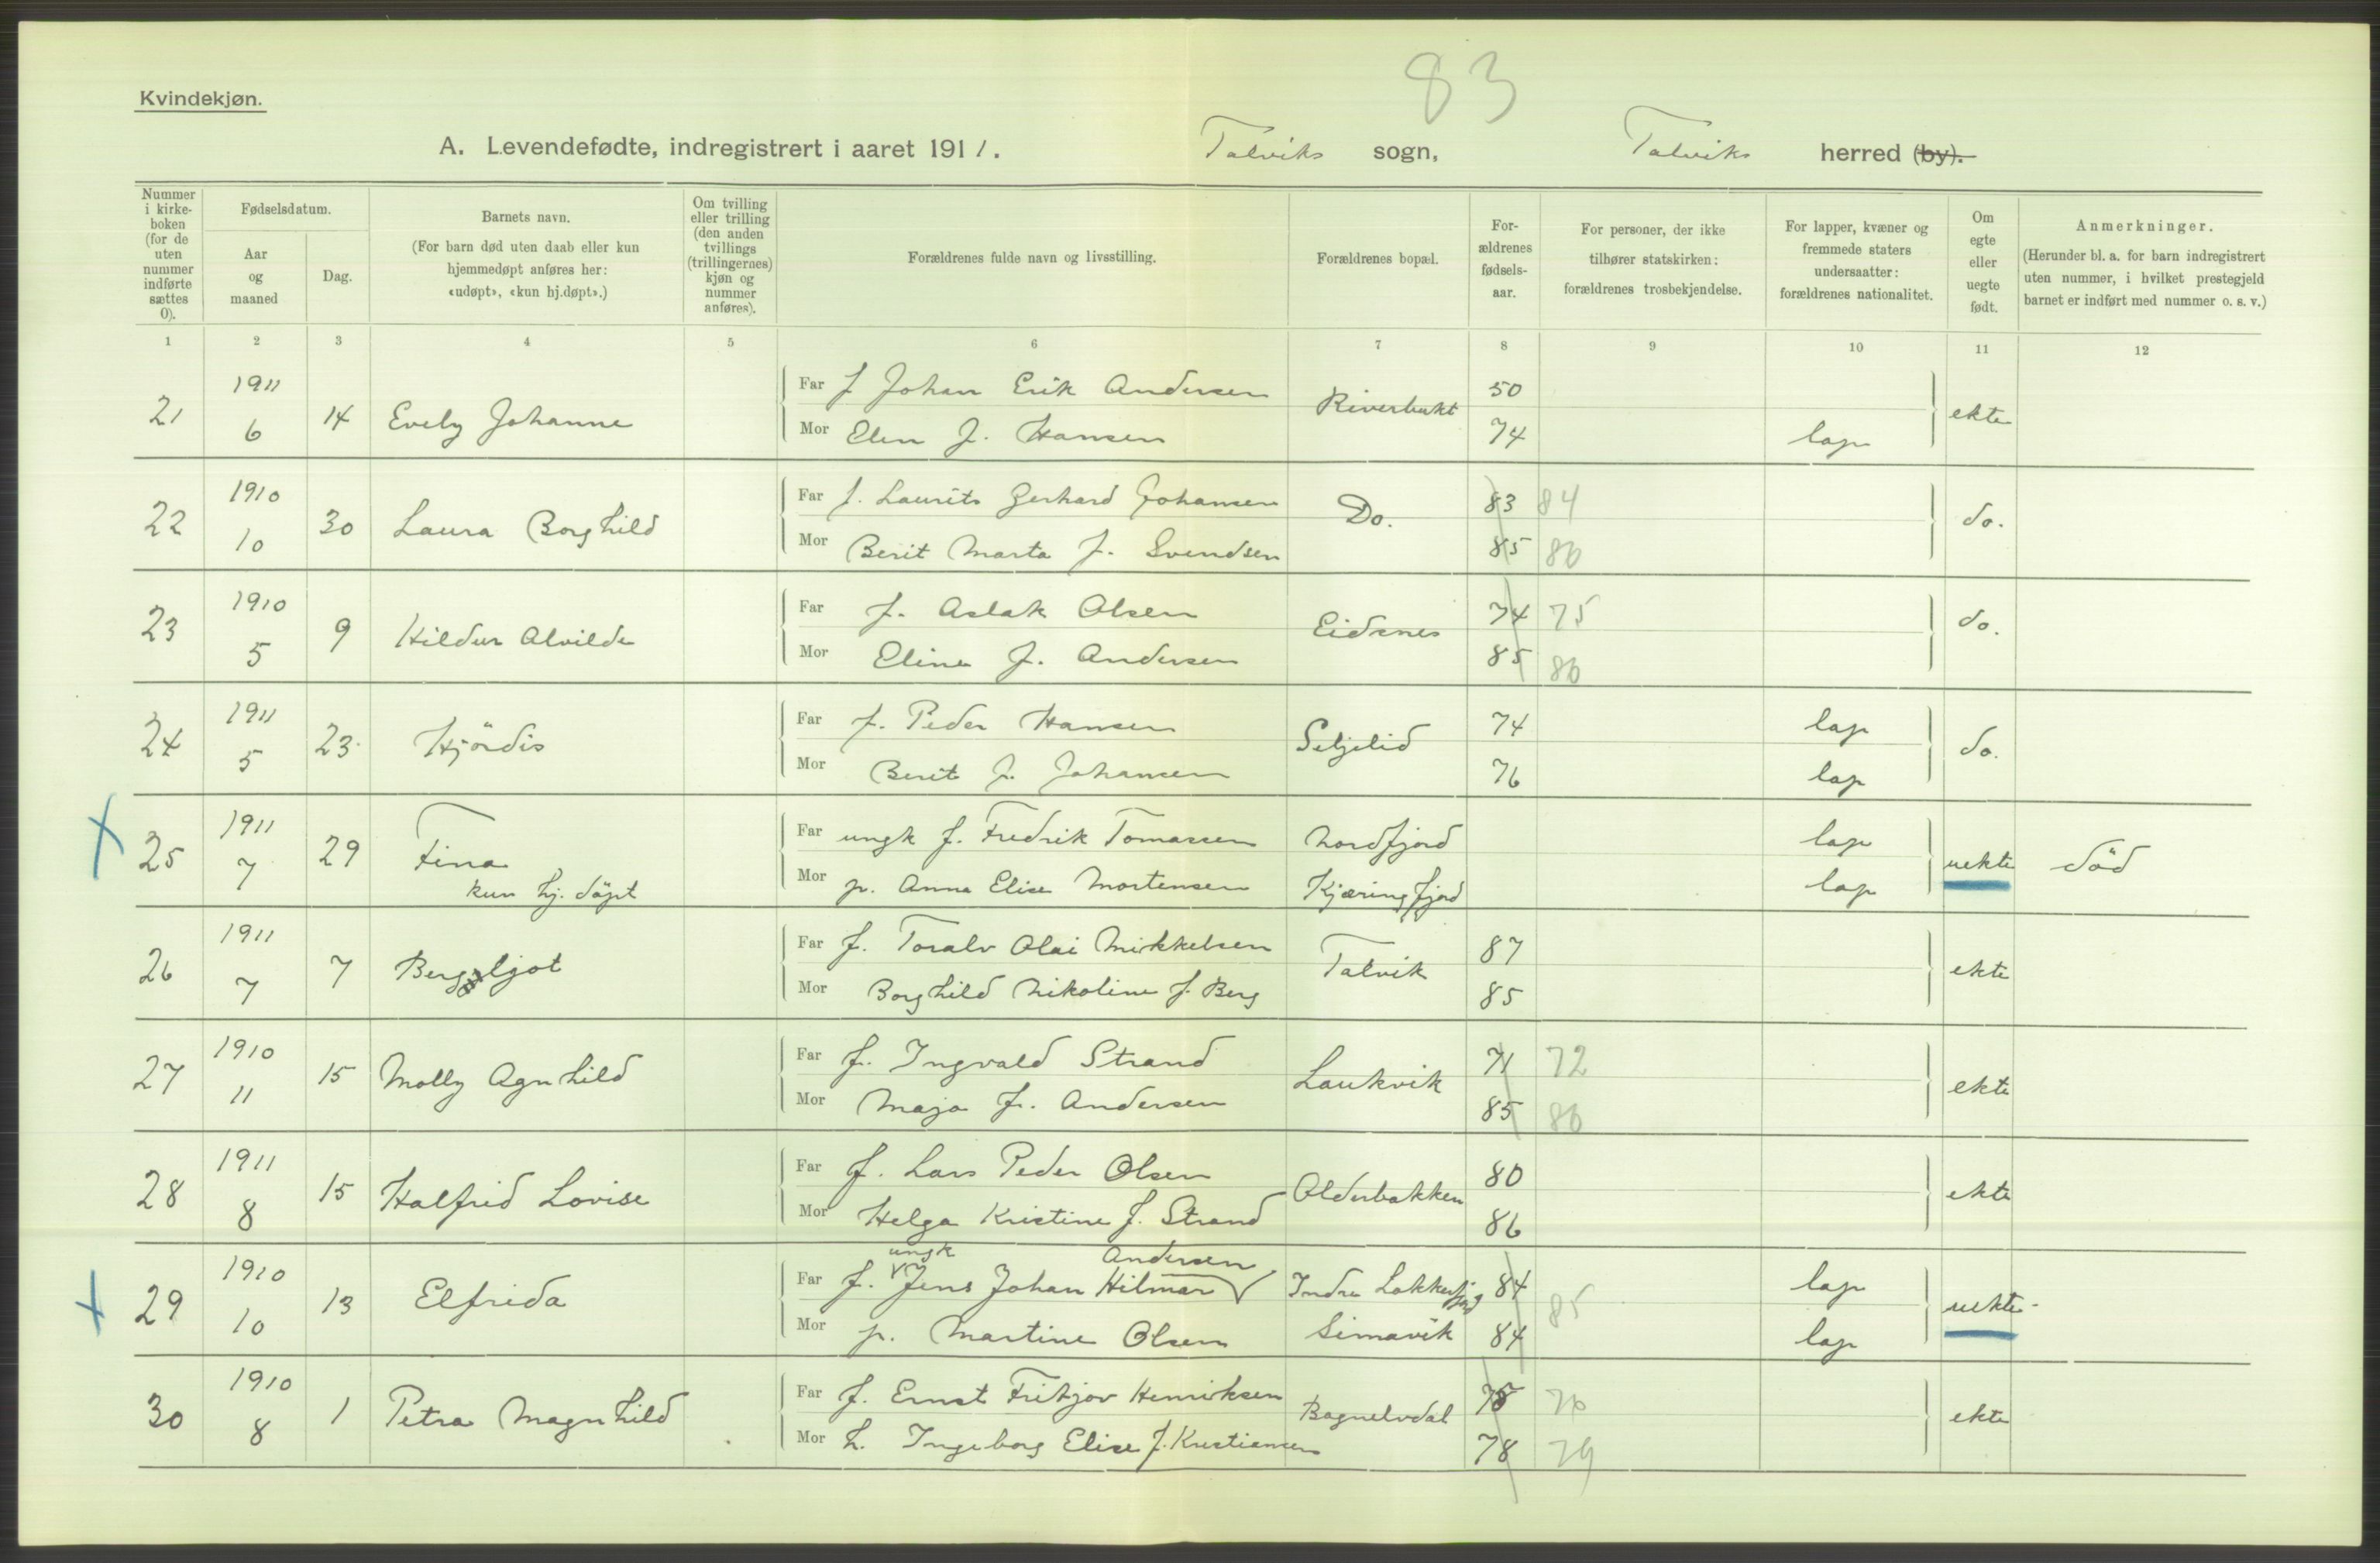 83
Kvindekjøn.
A. Levendefødte, indregistrert i aaret 1911. Talviks sogn, Talviks herred (by).
Nummer i kirke-boken (for de uten nummer indførte sættes 0).
Fødselsdatum.
Aar og maaned
Dag.
Barnets navn.
(For barn død uten daab eller kun hjemmedøpt anføres her: «udøpt», «kun hj.døpt».)
Om tvilling eller trilling (den anden tvillings (trillingernes) kjøn og nummer anføres).
Forældrenes fulde navn og livsstilling.
Forældrenes bopæl.
For-ældrenes fødsels-aar.
For personer, der ikke tilhører statskirken: forældrenes trosbekjendelse.
For lapper, kvæner og fremmede staters undersaatter: forældrenes nationalitet.
Om egte eller uegte født.
Anmerkninger.
(Herunder bl. a. for barn indregistrert uten nummer, i hvilket prestegjeld barnet er indført med nummer o. s. v.)
1 2 3 4 5 6 7 8 9 10 11 12
21 1911 6 14 Evely Johanne Far f Johan Erik Andersen Riverbukt 50 ekte
Mor Elen f. Hansen 74 lap
22 1910 10 30 Laura Borghild Far f. Laurits Gerhard Johansen Do. 83 84 do.
Mor Berit Marta f. Svendsen 85 86
23 1910 5 9 Hildur Alvilde Far f. Aslak Olsen Eidsnes 74 75 do.
Mor Eline f. Andersen 85 86
24 1911 5 23 Hjördis Far f. Peder Hansen Seljelid 74 lap do.
Mor Berit f. Johansen 76 lap
25 1911 7 29 Fina Far ungk f. Fredrik Tomassen Nordfjord lap uekte död
kun hj. döpt Mor p. Anna Elise Mortensen Kjæringfjord lap
26 1911 7 7 Bergljot Far f. Toralv Olai Mikkelsen Talvik 87 ekte
Mor Borghild Nikoline f. Berg 85
27 1910 11 15 Molly Agnhild Far f. Ingvald Strand Laukvik 71 72 ekte
Mor Maja f. Andersen 85 86
28 1911 8 15 Halfrid Lovise Far f. Lars Peder Olsen Olderbakken 80 ekte
Mor Helga Kristine f. Strand 86
ungk Andersen
29 1910 10 13 Elfrida Far f. Jens Johan Hilmar Indre Lokkerfjord 84 85 lap uekte
Mor p. Martine Olsen Simavik 84 lap
30 1910 8 1 Petra Magnhild Far f. Ernst Fritjov Henriksen Bognelvdal 75 76 ekte
Mor h. Ingeborg Elise f. Kristiansen 78 79